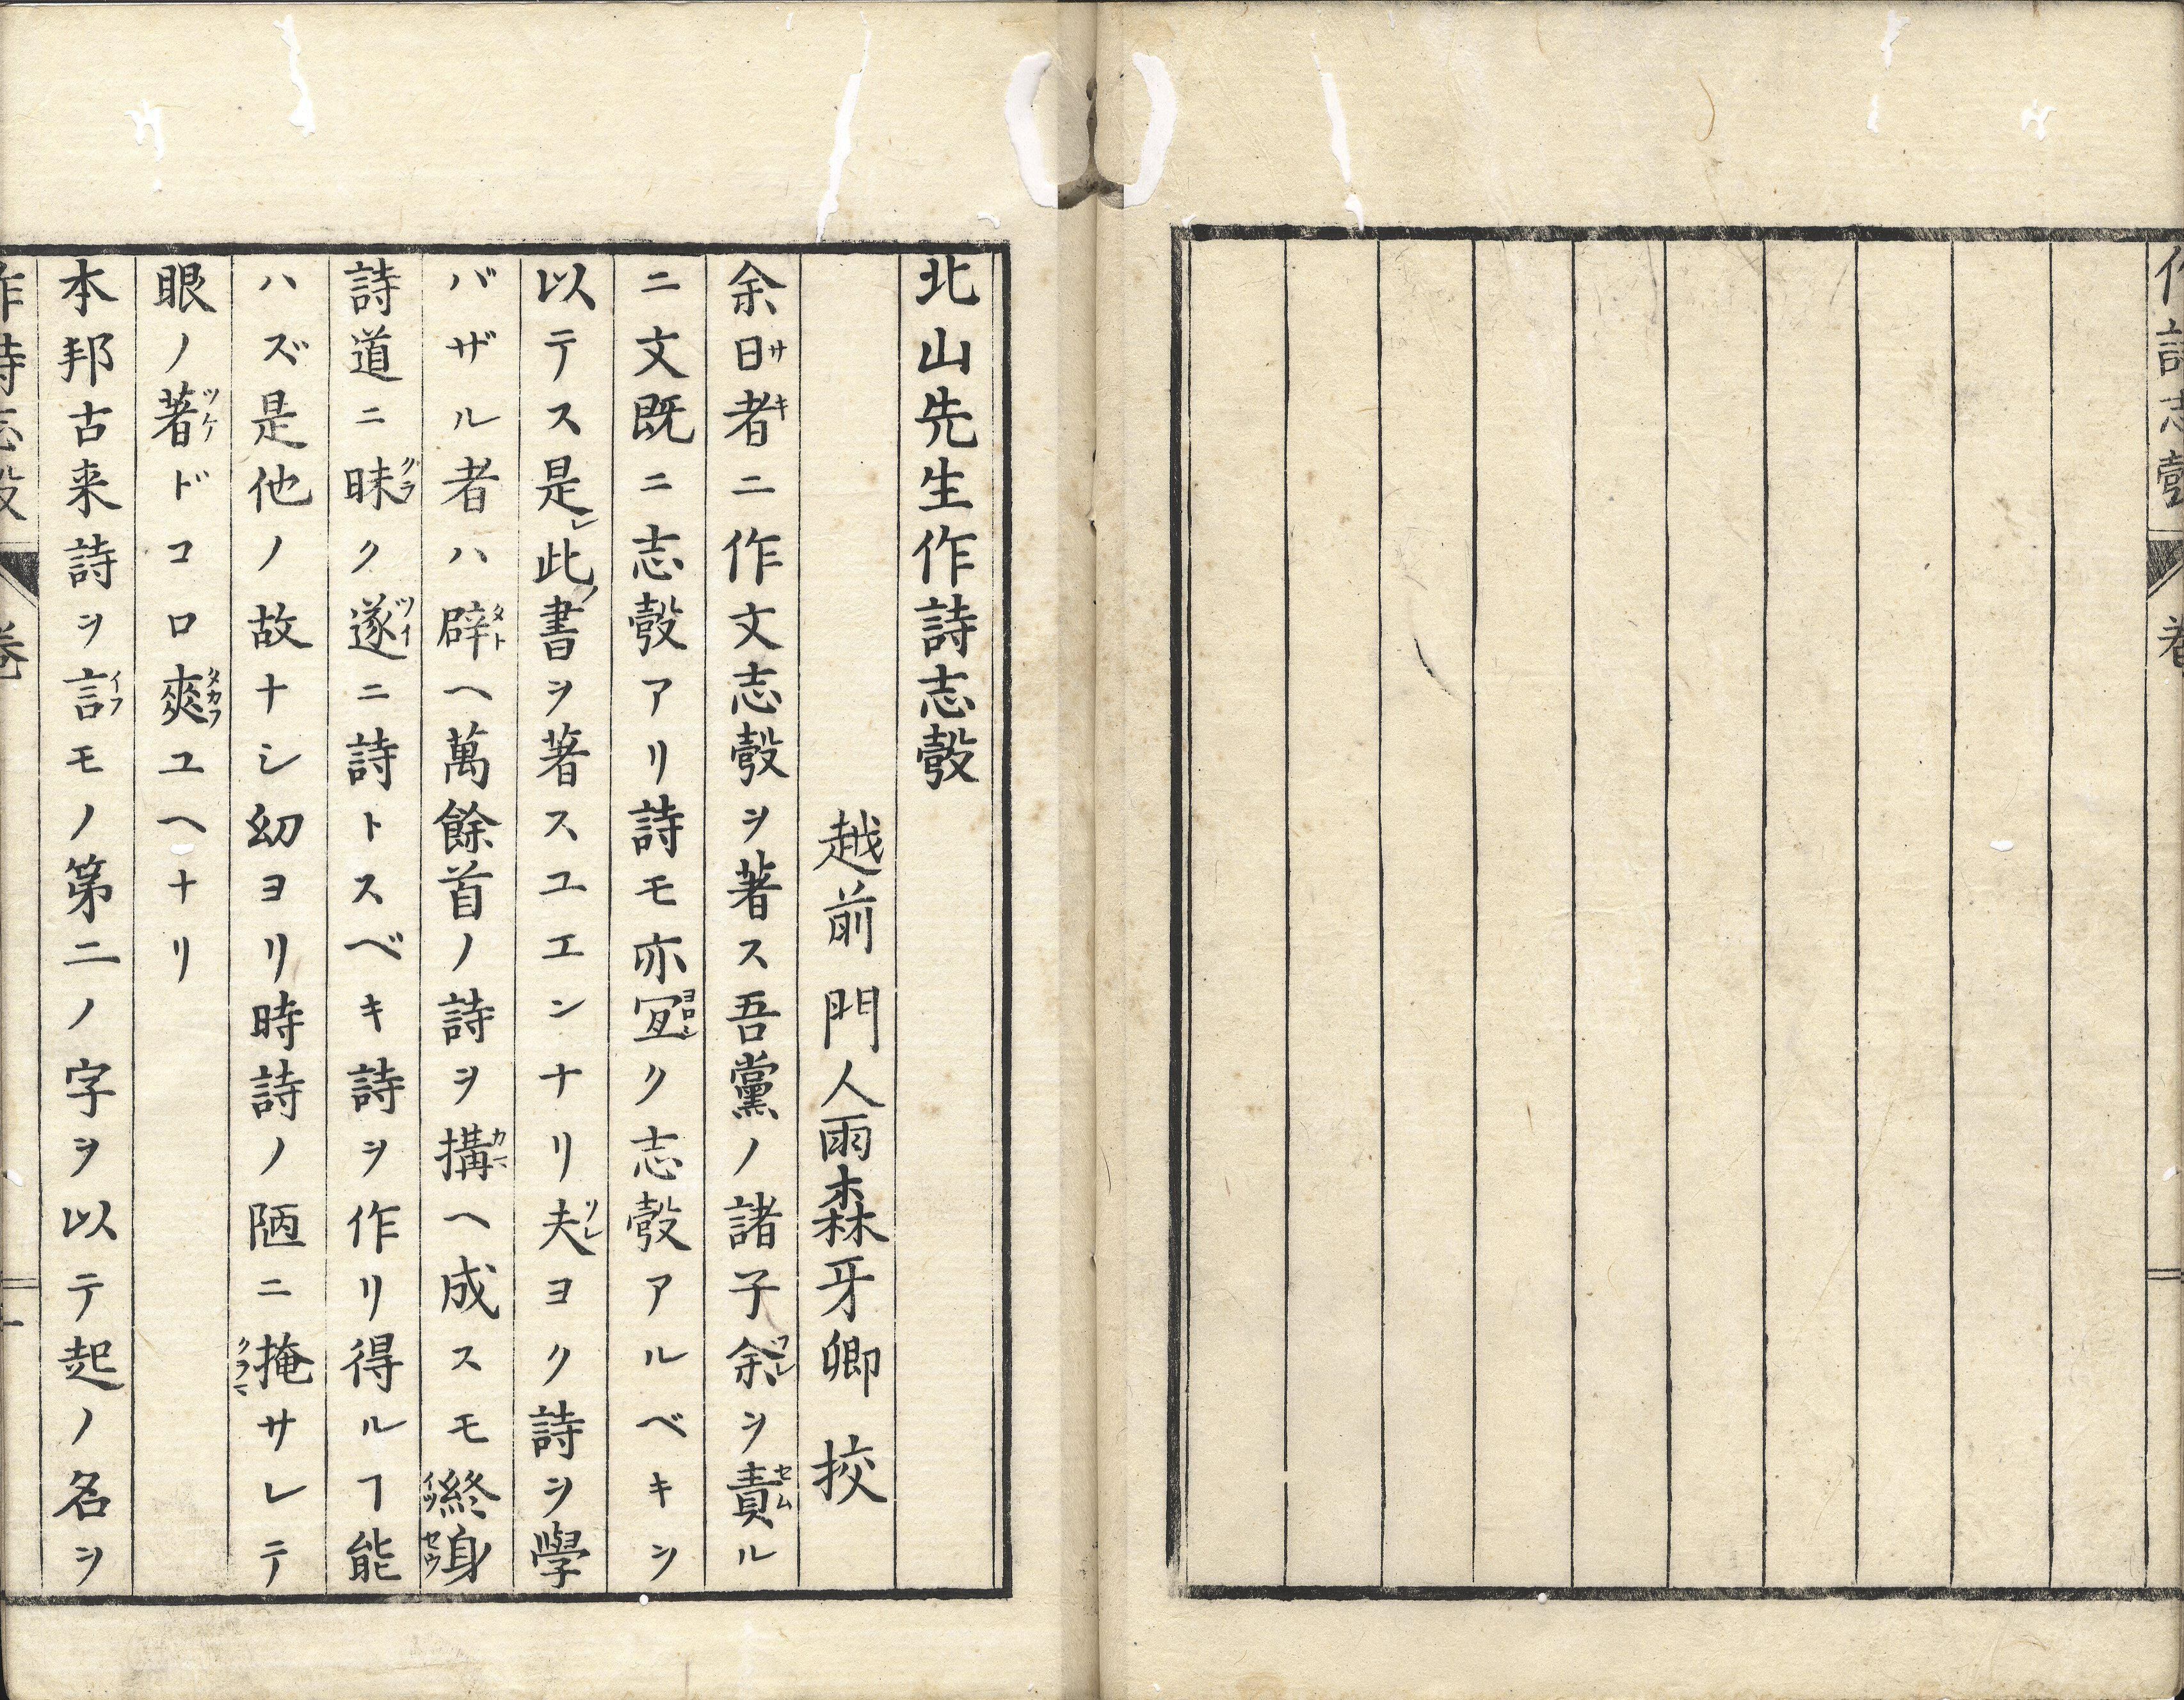 作詩志彀
巻
北山先生作詩志彀
越前 門人雨森牙卿 挍
余日者ニ作文志彀ヲ著ス吾黨ノ諸子余ヲ責ル
ニ文既ニ志彀アリ詩モ亦宜ク志彀アルベキヲ
以テス是レ此ノ書ヲ著スユエンナリ夫ヨク詩ヲ學
バザル者ハ辟ヘ萬餘首ノ詩ヲ搆ヘ成スモ終身
詩道ニ昧ク遂ニ詩トスベキ詩ヲ作リ得ルヿ能
ハズ是他ノ故ナシ幼ヨリ時詩ノ陋ニ掩サレテ
眼ノ著ドコロ爽ユヘナリ
本邦古来詩ヲ言モノ第二ノ字ヲ以テ起ノ名ヲ
作詩志彀 巻